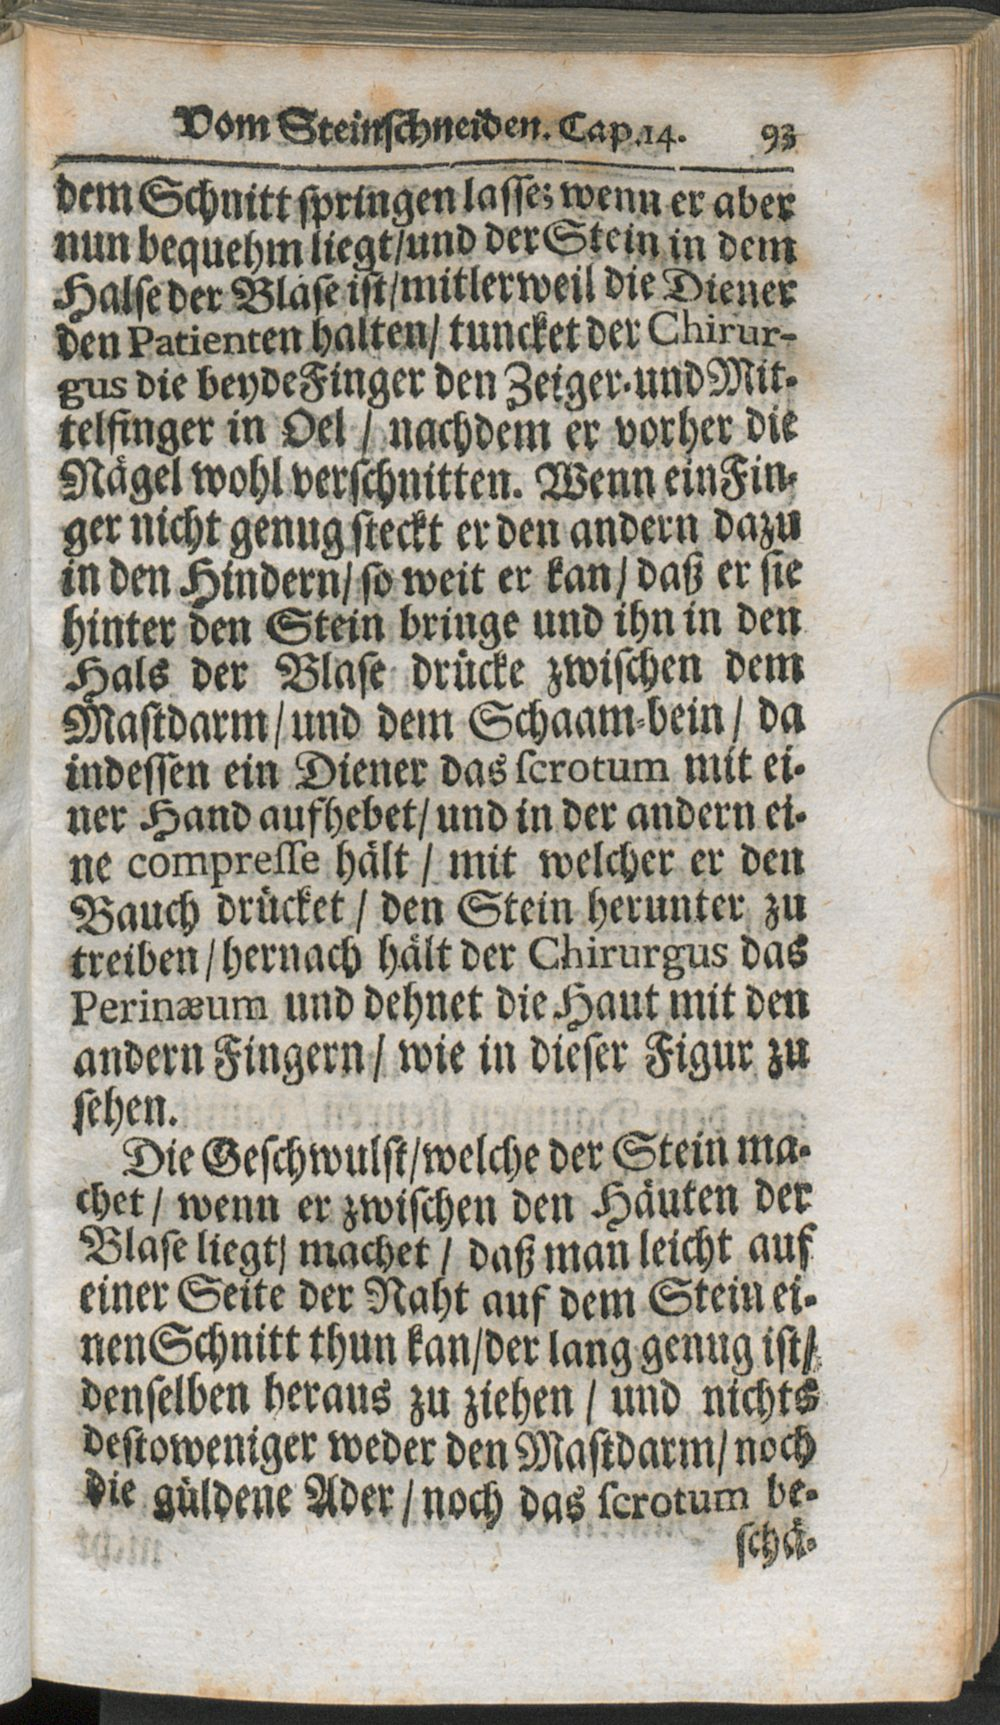 Vom Steinschneiden. Cap. 14. 93
dem Schnitt springen lasse; wenn er aber
nun bequehm liegt/und der Stein in dem
Halse der Blase ist/mitlerweil die Diener
den Patienten halten/ tuncket der Chirur-
gus die beyde Finger den Zeiger-und Mit-
telfinger in Oel / nachdem er vorher die
Nägel wohl verschnitten. Wenn ein Fin-
ger nicht genug steckt er den andern dazu
in den Hindern/ so weit er kan/ daß er sie
hinter den Stein bringe und ihn in den
Hals der Blase drücke zwischen dem
Mastdarm/ und dem Schaam-bein/ da
indessen ein Diener das scrotum mit ei-
ner Hand aufhebet/ und in der andern ei-
ne compresse hält / mit welcher er den
Bauch drücket / den Stein herunter zu
treiben/ hernach hält der Chirurgus das
Perinæum und dehnet die Haut mit den
andern Fingern/ wie in dieser Figur zu
sehen.
Die Geschwulst/welche der Stein ma-
chet/ wenn er zwischen den Häuten der
Blase liegt/ machet / daß man leicht auf
einer Seite der Naht auf dem Stein ei-
nen Schnitt thun kan/der lang genug ist/
denselben heraus zu ziehen / und nichts
destoweniger weder den Mastdarm/ noch
die güldene Ader / noch das scrotum be-
schä-